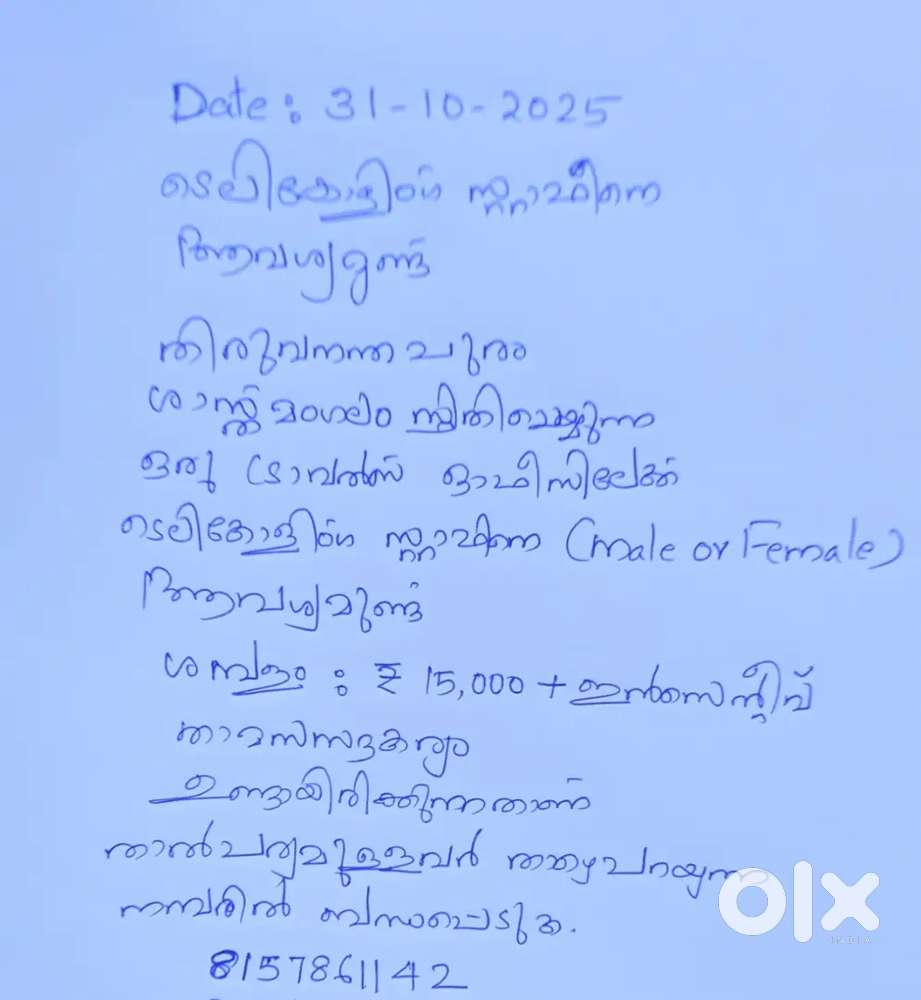 Date : 31-10-2025
ടെലികോളിംഗ് സ്റ്റാഫിനെ
ആവശ്യമുണ്ട്
തിരുവനന്തപുരം
ശാസ്തമംഗലം സ്ഥിതിചെയ്യുന്ന
ഒരു ട്രാവൽസ് ഓഫീസിലേക്ക്
ടെലികോളിംഗ് സ്റ്റാഫിനെ (male or Female)
ആവശ്യമുണ്ട്
ശമ്പളം : ₹ 15,000 + ഇൻസെന്റീവ്
താമസസൗകര്യം
ഉണ്ടായിരിക്കുന്നതാണ്
താൽപര്യമുള്ളവർ താഴെപറയുന്ന
നമ്പരിൽ ബന്ധപ്പെടുക.
8157861142
olx
INDIA